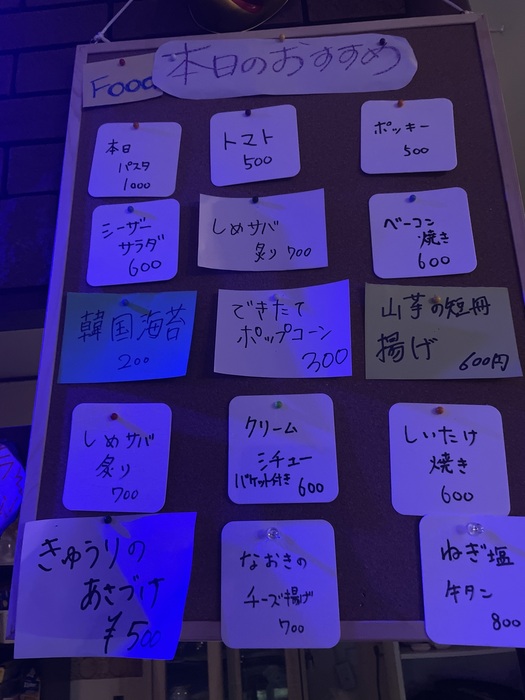 Food
本日のおすすめ
本日
パスタ
1000
トマト
500
ポッキー
500
シーザー
サラダ
600
しめサバ
炙り 700
ベーコン
焼き
600
韓国海苔
200
できたて
ポップコーン
300
山芋の短冊
揚げ
600円
しめサバ
炙り
700
クリーム
シチュー
バケット付き 600
しいたけ
焼き
600
きゅうりの
あさづけ
¥500
なおきの
チーズ揚げ
700
ねぎ塩
牛タン
800